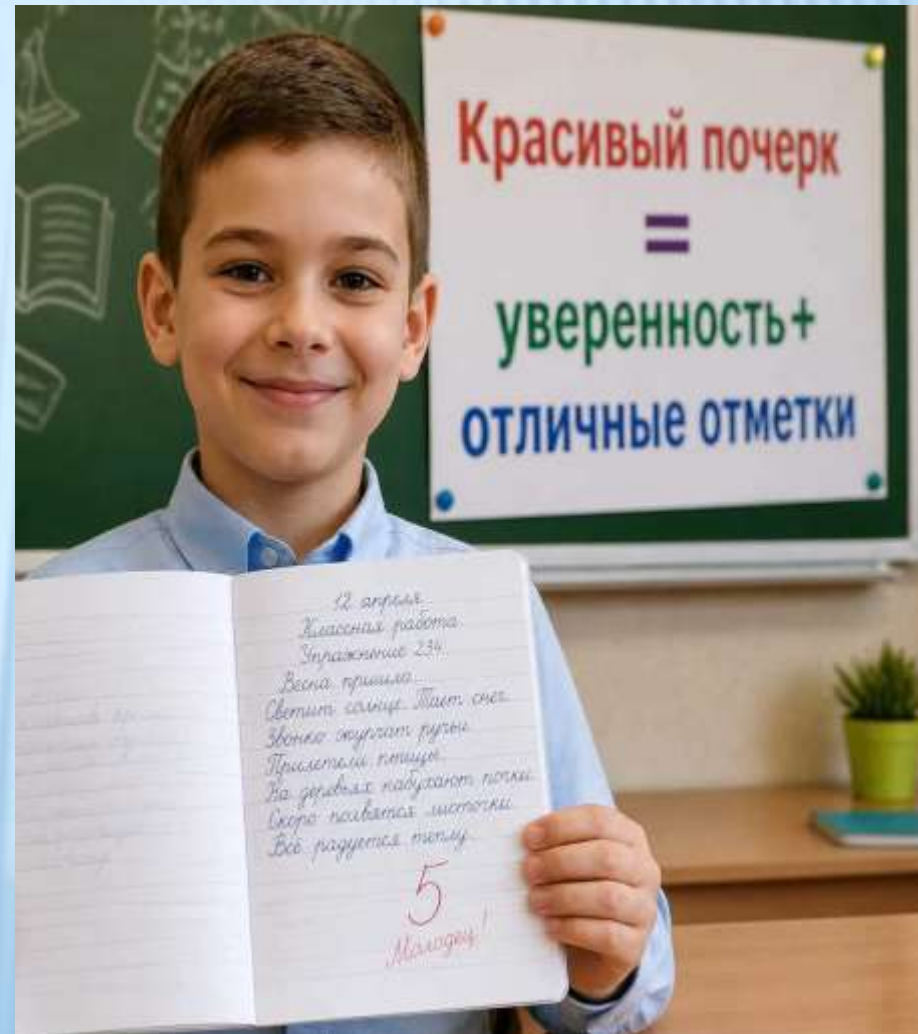 Красивый почерк
=
уверенность+
отличные отметки
12 апреля
Классная работа
Упражнение 234.
Весна пришла.
Светит солнце. Тает снег.
Звонко журчат ручьи.
Прилетели птицы.
На деревьях набухают почки.
Скоро появятся листочки.
Всё радуется теплу.
5
Молодец!